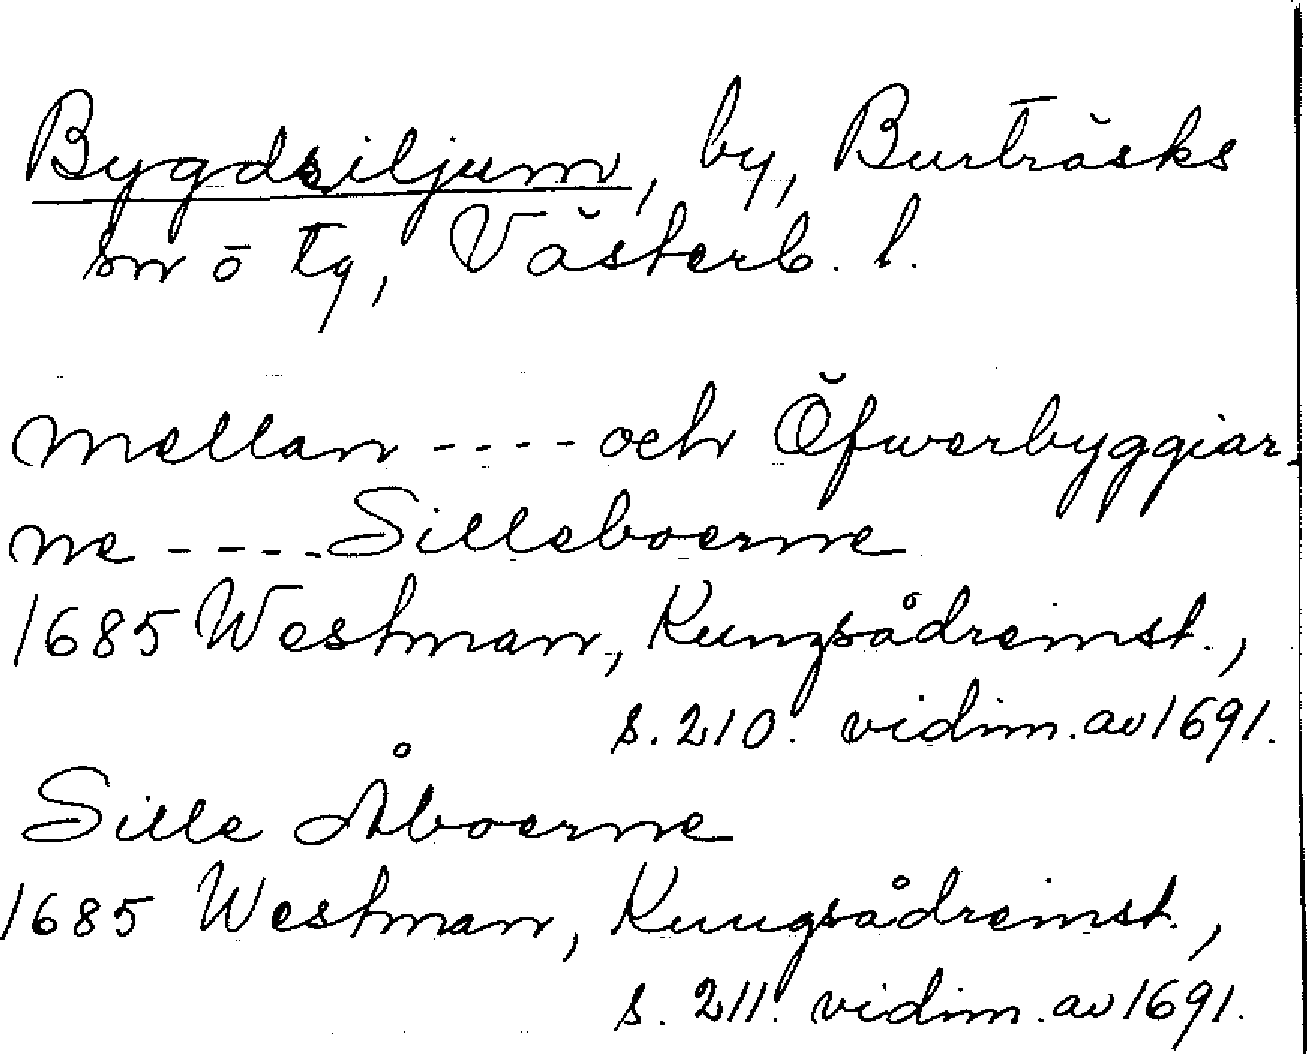 Bygdsiljum, by, Burträsks
sn o tg, Västerb. l.
mellan ---- och Öfwerbyggiar-
ne ---- Silleboerne
1685 Westman, Kungsådreinst.,
s. 210. vidim. av 1691.
Sille Åboerne
1685 Westman, Kungsådreinst.,
s. 211. vidim. av 1691.